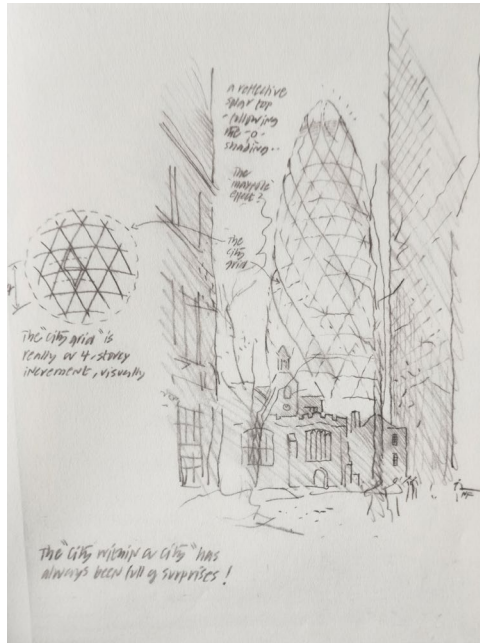 a reflective
solar top
- following
the
shading..
The
"maypole"
effect?
The
city
grid
The "city grid" is
really a 4-storey
increment, visually
The "City within a City" has
always been full of surprises!